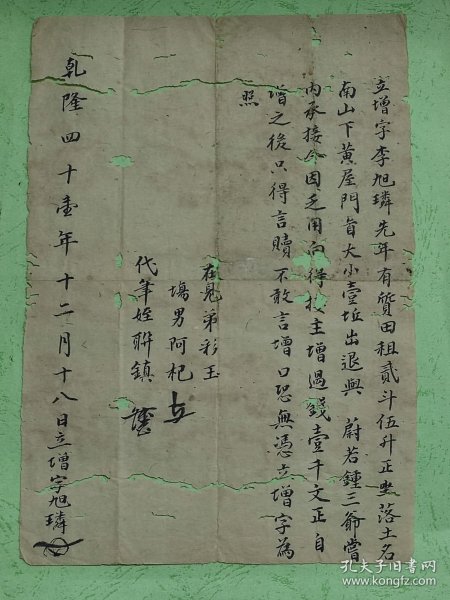 立增字李旭璘先年有質田租貳斗伍升正坐落土名
南山下黄屋門首大小壹坵出退與 蔚若鍾三爺嘗
内承接今因乏用向得找主增過錢壹千文正自
增之後只得言贖不敢言增口恐無憑立增字為
照
在見弟彩玉
塲男阿杞
代筆姪聨鎮
乾隆四十壹年十二月十八日立增字旭璘
孔夫子旧书网
www.kongfz.com